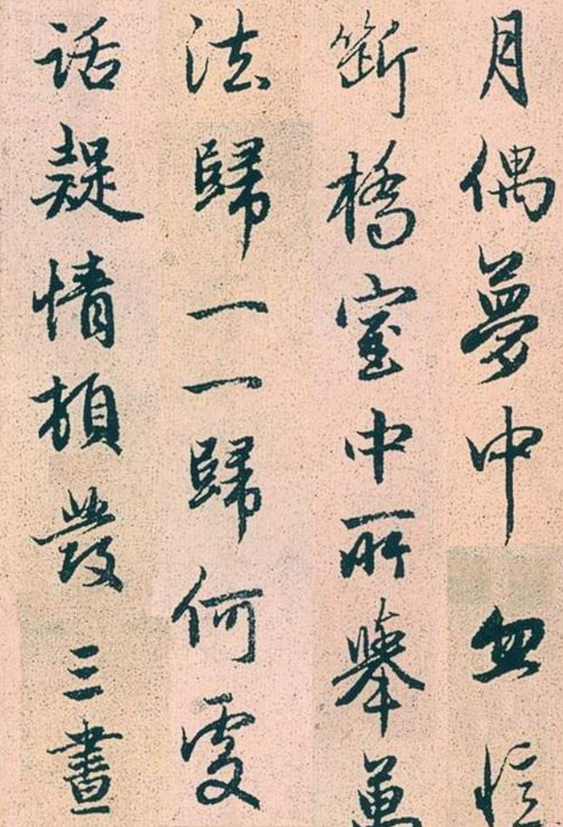 月偶夢中忽憶
斷橋室中所舉萬
法歸一一歸何處
話疑情頓發三晝